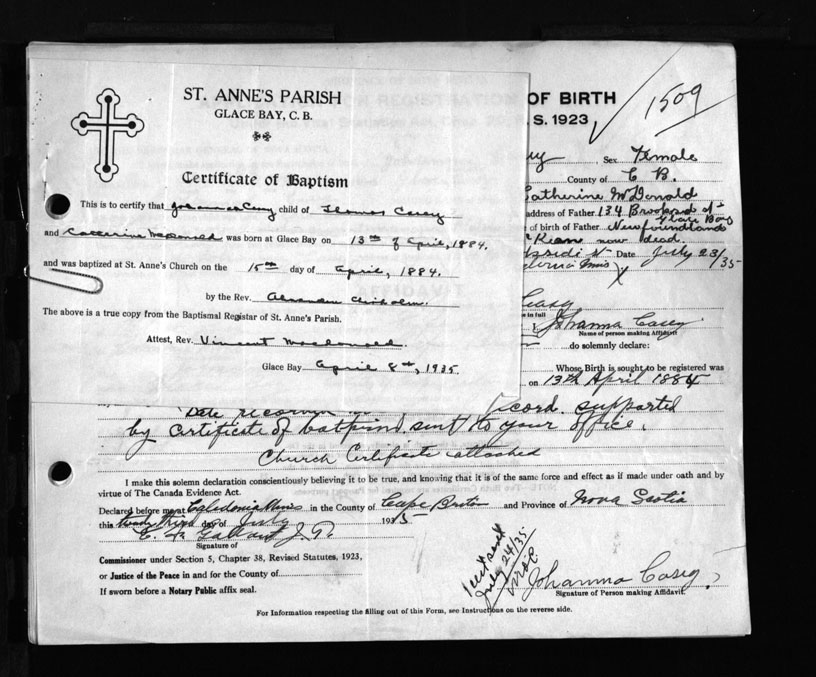 ST. ANNE'S PARISH
GLACE BAY, C. B.
Certificate of Baptism
This is to certify that Johanna Casey child of Thomas Casey
and Catherine McDonald was born at Glace Bay on 13th of April, 1884.
and was baptized at St. Anne's Church on the 15th day of April, 1884.
by the Rev. Alexander Chisholm.
The above is a true copy from the Baptismal Registar of St. Anne's Parish.
Attest, Rev. Vincent MacDonald.
Glace Bay April 8th, 1935.
OF BIRTH
S. 1923
1509
Sex Female
County of C B.
Catherine McDonald
address of Father 134 Brookside St
Glace Bay
of birth of Father Newfoundland
McKean now dead.
Date July 23/35
Casey
in full
Johanna Casey
Name of person making Affidavit
do solemnly declare:
Whose Birth is sought to be registered was
on 13th April 1884
record supported
by certificate of baptism sent to your office.
Church Certificate attached
I make this solemn declaration conscientiously believing it to be true, and knowing that it is of the same force and effect as if made under oath and by
virtue of The Canada Evidence Act.
Declared before me at Caledonia Mines in the County of Cape Breton and Province of Nova Scotia
this twenty third day of July 1935
Signature of
Commissioner under Section 5, Chapter 38, Revised Statutes, 1923,
or Justice of the Peace in and for the County of
If sworn before a Notary Public affix seal.
July 24/35
Johanna Casey.
Signature of Person making Affidavit.
For Information respecting the filling out of this Form, see Instructions on the reverse side.